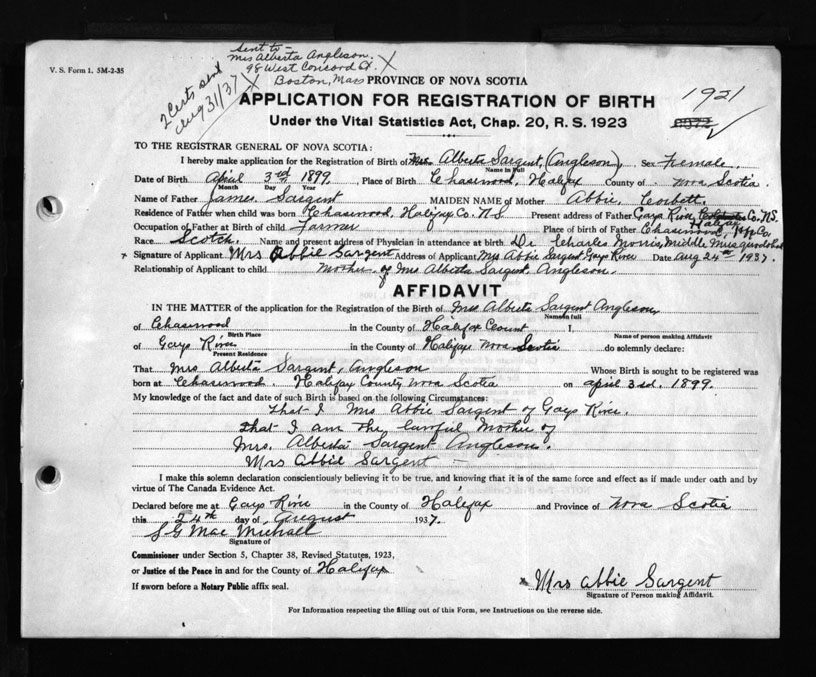 V. S. Form 1. 5M-2-35
Sent to-
Mrs Alberta Angleson. X
98 West Concord St.
Boston, Mass
2 Certs sent
Aug 31/37 X
PROVINCE OF NOVA SCOTIA
APPLICATION FOR REGISTRATION OF BIRTH
1921
Under the Vital Statistics Act, Chap. 20, R. S. 1923
TO THE REGISTRAR GENERAL OF NOVA SCOTIA:
I hereby make application for the Registration of Birth of Mrs. Alberta Sargent, (Angleson), Sex Female.
Name in Full
Date of Birth April 3rd 1899, Place of Birth Chaswood, Halifax County of Nova Scotia.
Month Day Year
Name of Father James Sargent MAIDEN NAME of Mother Abbie Corbett.
Residence of Father when child was born Chaswood, Halifax Co. N.S Present address of Father Gays River Halifax Co. N.S.
Occupation of Father at Birth of child Farmer Place of birth of Father Chaswood, Hfx Co.
Race Scotch. Name and present address of Physician in attendance at birth Dr Charles Morris, Middle Musquodoboit
x Signature of Applicant Mrs Abbie Sargent Address of Applicant Mrs Abbie Sargent Gays River Date Aug 24th 1937.
Relationship of Applicant to child Mother of Mrs Alberta Sargent Angleson.
AFFIDAVIT
IN THE MATTER of the application for the Registration of the Birth of Mrs Alberta Sargent Angleson,
Name in full
of Chaswood in the County of Halifax Count I,
Birth Place Name of person making Affidavit
of Gays River in the County of Halifax Nova Scotia do solemnly declare:
Present Residence
That Mrs Alberta Sargent, Angleson Whose Birth is sought to be registered was
born at Chaswood. Halifax County, Nova Scotia on April 3rd. 1899.
My knowledge of the fact and date of such Birth is based on the following Circumstances:
That I Mrs Abbie Sargent of Gays River.
That I am the lawful Mother of
Mrs. Alberta Sargent Angleson.
Mrs Abbie Sargent
I make this solemn declaration conscientiously believing it to be true, and knowing that it is of the same force and effect as if made under oath and by
virtue of The Canada Evidence Act.
Declared before me at Gays River in the County of Halifax and Province of Nova Scotia
this 24th day of August 1937.
S G Mac Michall
Signature of
Commissioner under Section 5, Chapter 38, Revised Statutes, 1923,
or Justice of the Peace in and for the County of Halifax
If sworn before a Notary Public affix seal.
x Mrs Abbie Sargent
Signature of Person making Affidavit.
For Information respecting the filling out of this Form, see Instructions on the reverse side.